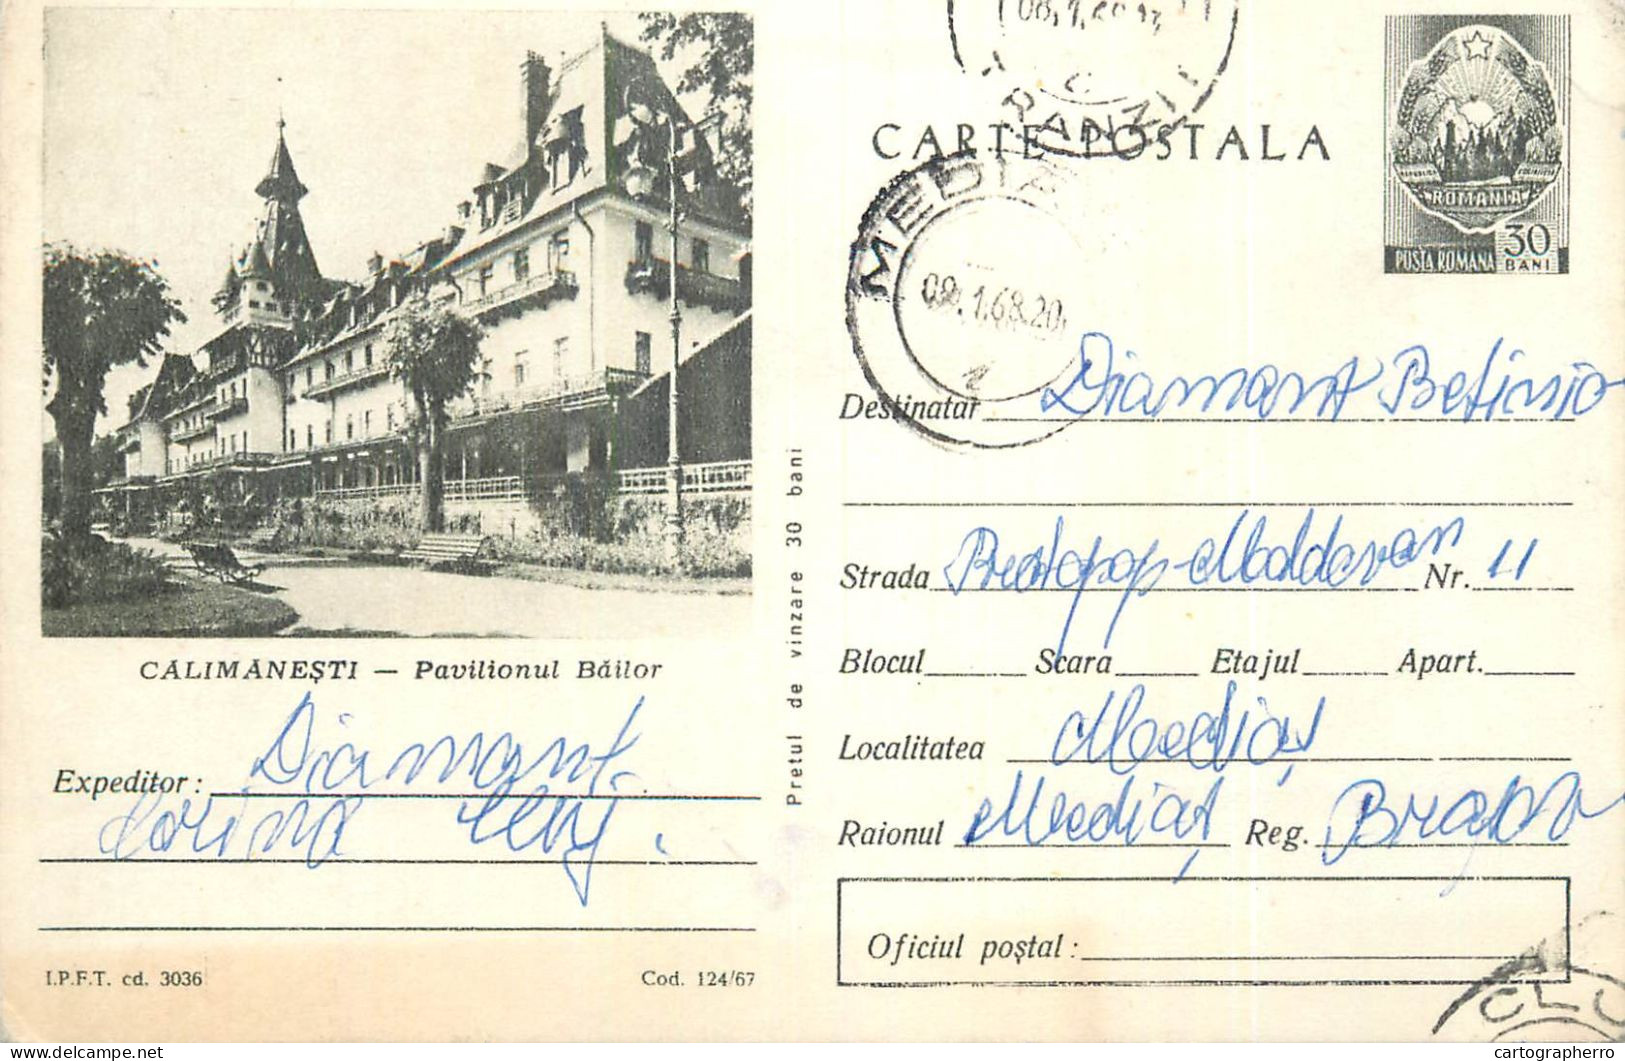 CARTE POSTALA
ROMANIA
POSTA ROMANA 30 BANI
MEDIAȘ
09.1.68.20
TRANZIT
CĂLIMĂNEȘTI — Pavilionul Băilor
Expeditor: Diamant
Corina Cluj.
I.P.F.T. cd. 3036
Cod. 124/67
Pretul de vinzare 30 bani
Destinatar Diamant
Strada Protopop Moldovan Nr. 11
Blocul Scara Etajul Apart.
Localitatea Mediaș
Raionul Mediaș Reg. Brașov
Oficiul poștal:
CLU
cartographerro